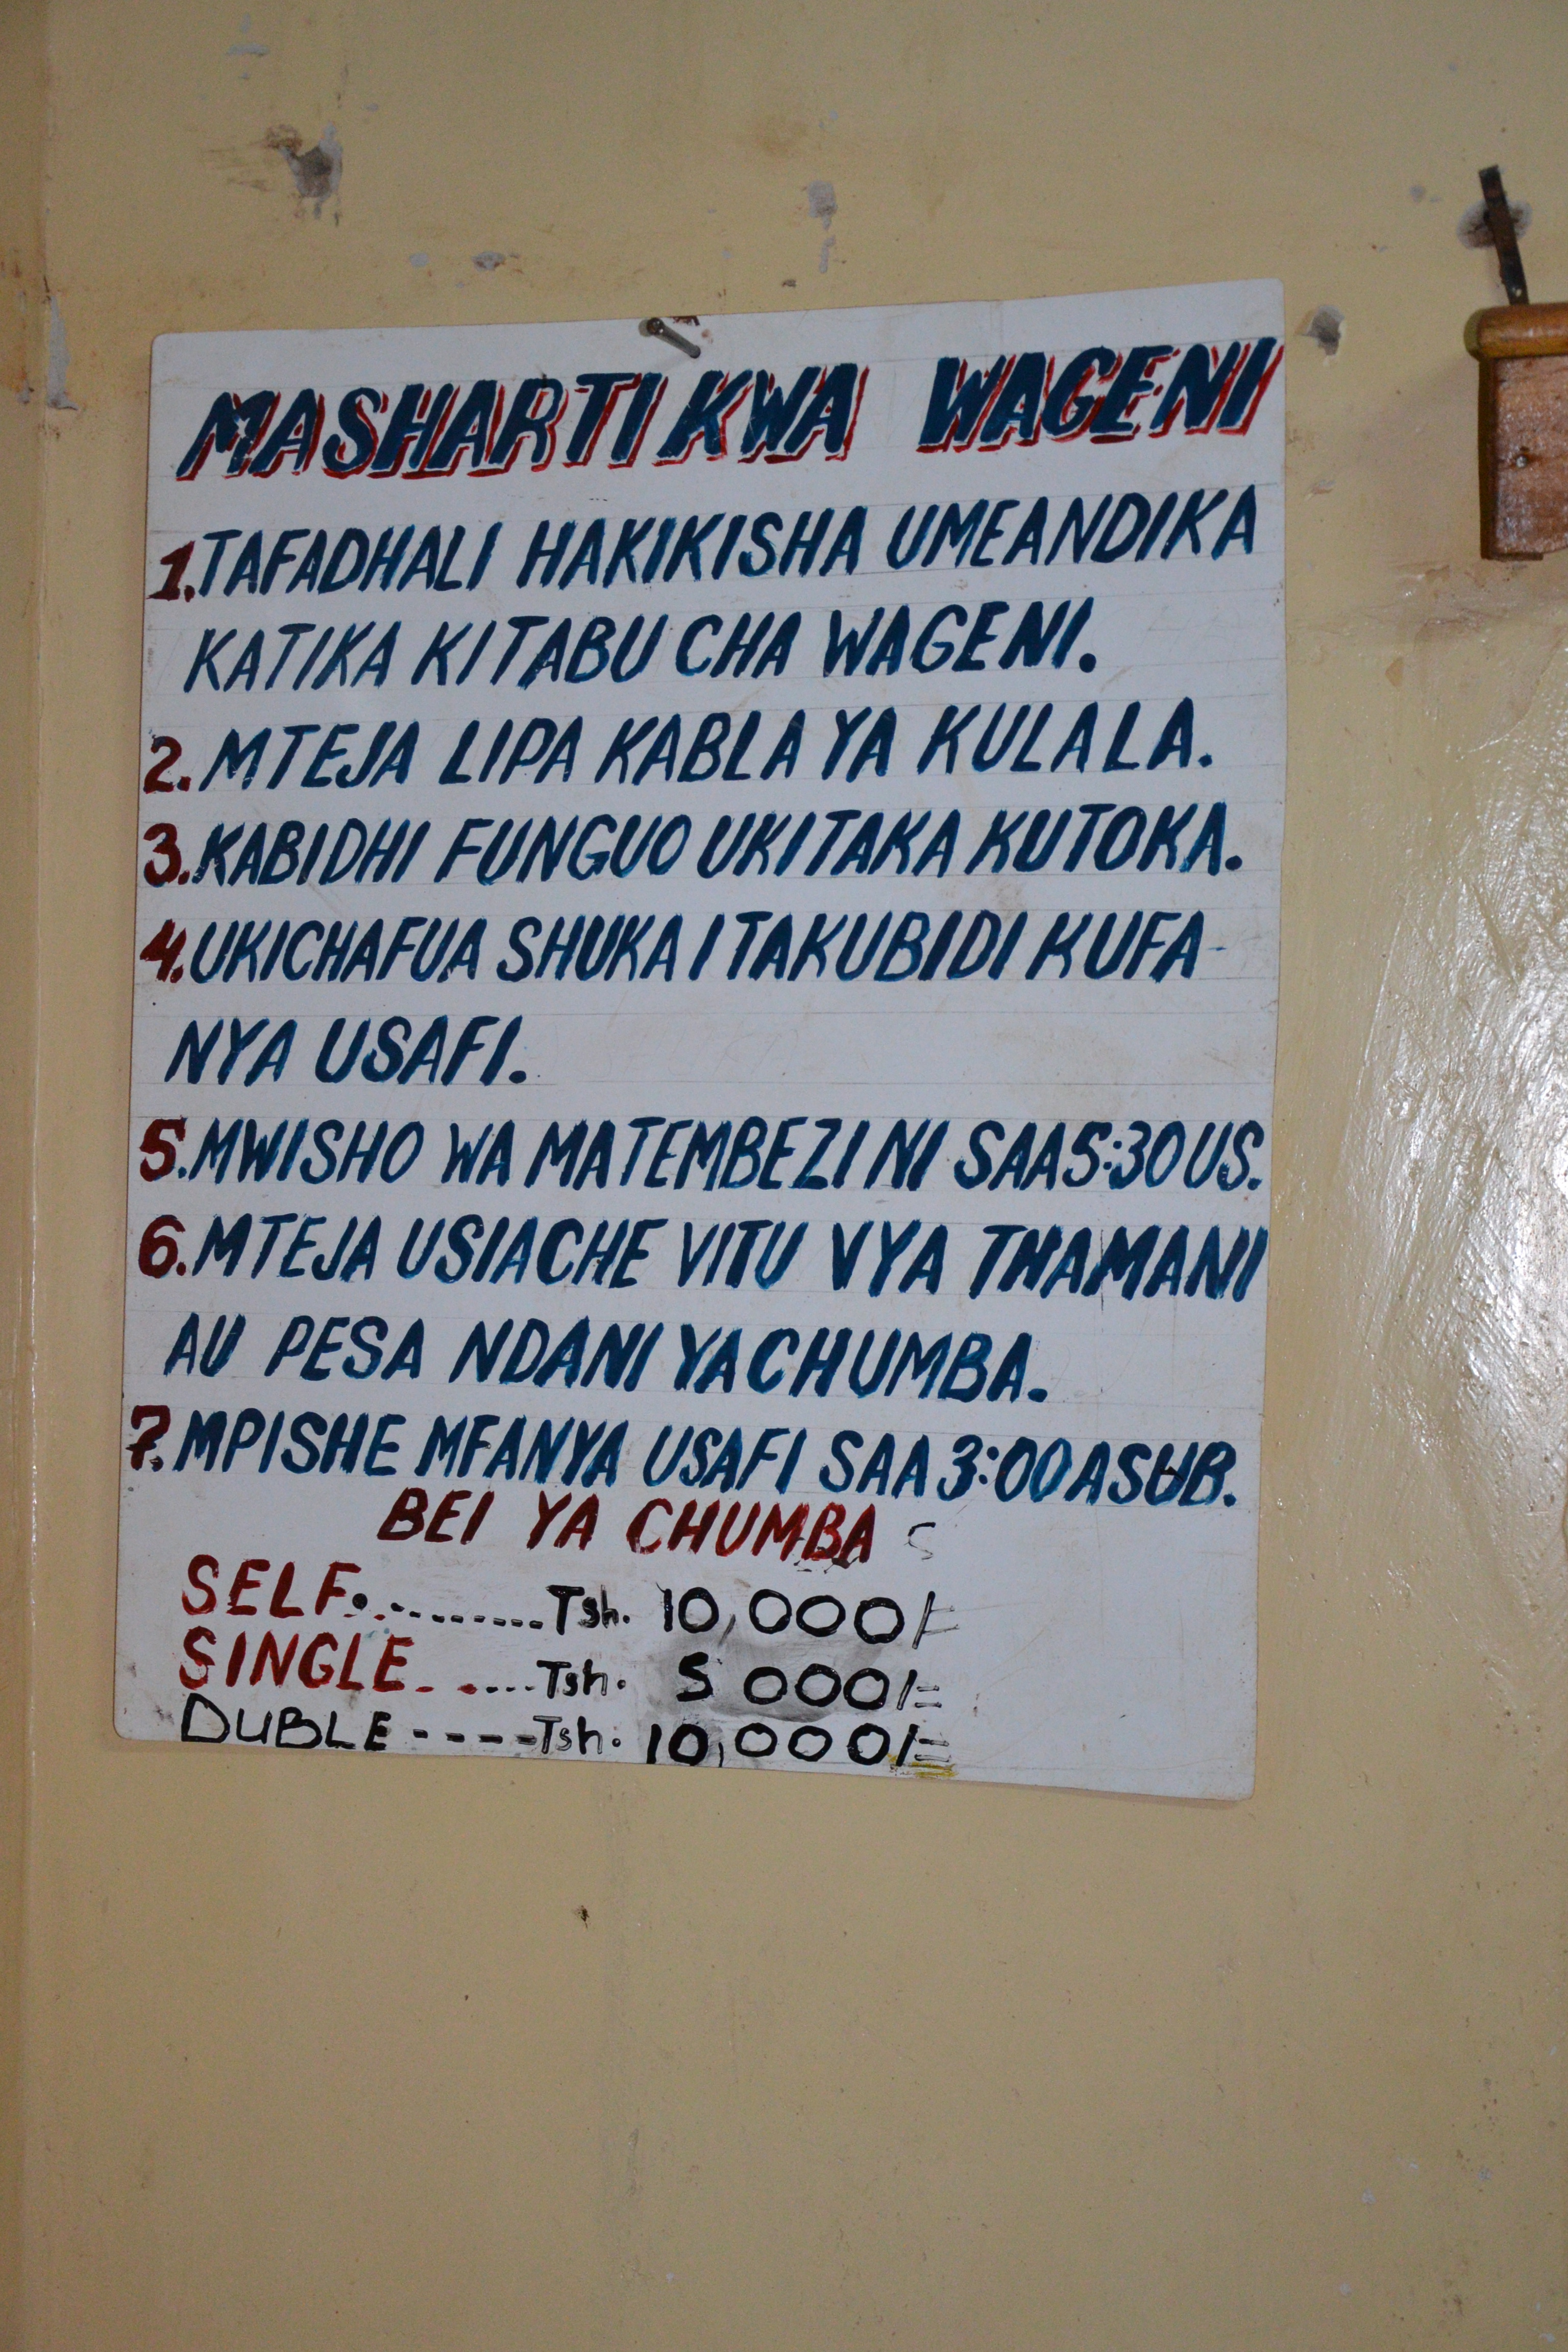 MASHARTI KWA WAGENI
1. TAFADHALI HAKIKISHA UMEANDIKA
KATIKA KITABU CHA WAGENI.
2. MTEJA LIPA KABLA YA KULALA.
3. KABIDHI FUNGUO UKITAKA KUTOKA.
4. UKICHAFUA SHUKA ITAKUBIDI KUFA-
NYA USAFI.
5. MWISHO WA MATEMBEZI NI SAA 5:30 US.
6. MTEJA USIACHE VITU VYA THAMANI
AU PESA NDANI YA CHUMBA.
7. MPISHE MFANYA USAFI SAA 3:00 ASUB.
BEI YA CHUMBA
SELF..........Tsh. 10,000/=
SINGLE......Tsh. 5 000/=
DUBLE ----Tsh. 10,000/=